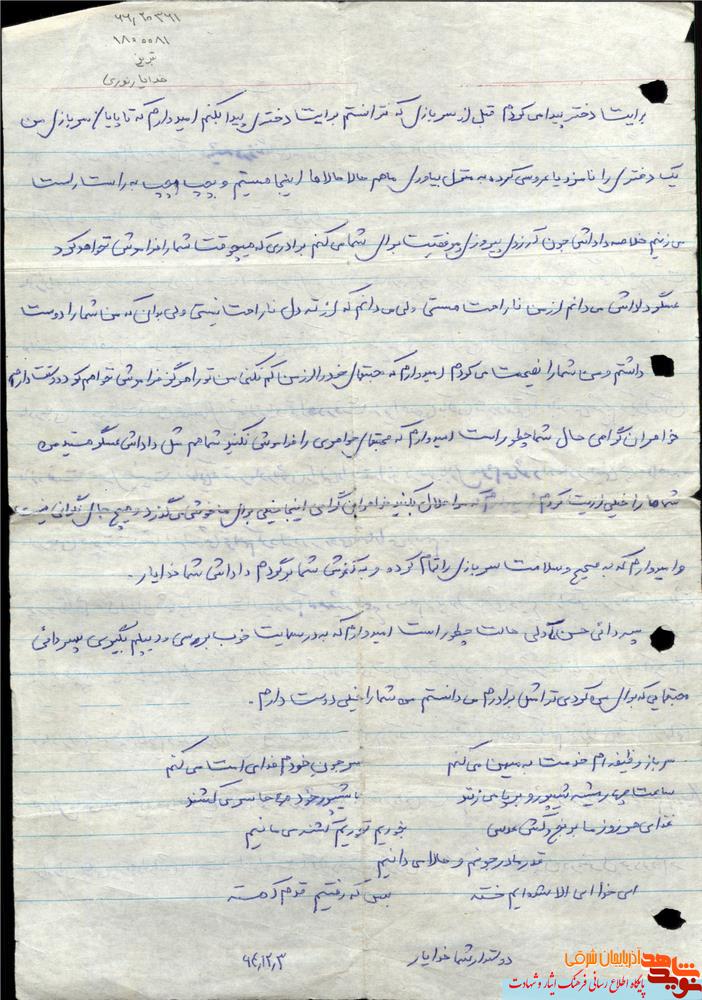 تبریز
خدایار نوری
برایت دختر پیدا می کردم قبل از سربازی که نتوانستم برایت دختری پیدا بکنم امیدوارم که تا پایان سربازی من
یک دختری را نامزد یا عروسی کرده به منزل بیاوری ما هم حالا حالاها اینجا هستیم و بچپ چپ به راست راست
می زنیم خلاصه داداش جون آرزوی پیروزی و موفقیت برای شما می کنم برادری که هیچوقت شما را فراموش نخواهد کرد
عسگر داداش می دانم از من ناراحت هستی ولی می دانم که از ته دل ناراحت نیستی ولی بدان که من شما را دوست
داشتم و من شما را نصیحت می کردم امیدوارم که محبتهای خود را از من کم نکنی من تو را هرگز فراموش نخواهم کرد دوستت دارم
خواهران گرامی حال شما چطور است امیدوارم که محبتهای خواهری را فراموش نکنید شما هم مثل داداش عسگر هستید من
شماها را خیلی اذیت کردم که مرا حلال بکنید خواهران گرامی اینجا خیلی برای ما خوش می گذرد و هیچ جای نگرانی نیست
و امیدوارم که به صحیح و سلامت سربازی را تمام کرده و به آغوش شما برگردم داداش شما خدایار.
پسر دائی حسن حالت چطور است امیدوارم که به درسهایت خوب برسی و دیپلم بگیری پسر دائی
محبتهایی که برای من کردی ترا مثل برادرم می دانستم من شما را خیلی دوست دارم.
سرباز وظیفه ام خدمت به میهن می کنم سر جون خودم فدای امت می کنم
ساعت چهار همیشه شیپور و برپا می زنند با شیپور خود
غذای هر روز ما برنج و گشی عدسی بخوریم نخوریم گشنه می مانیم
قدر مادر جونم و حالا می دانیم
ای خدا ای الله شده ایم خسته بس که رفتیم قدم آهسته
دوستدار شما خدایار ۶۴٫۱۲٫۳
نوید شاهد آذربایجان شرقی
پایگاه اطلاع رسانی فرهنگ ایثار و شهادت